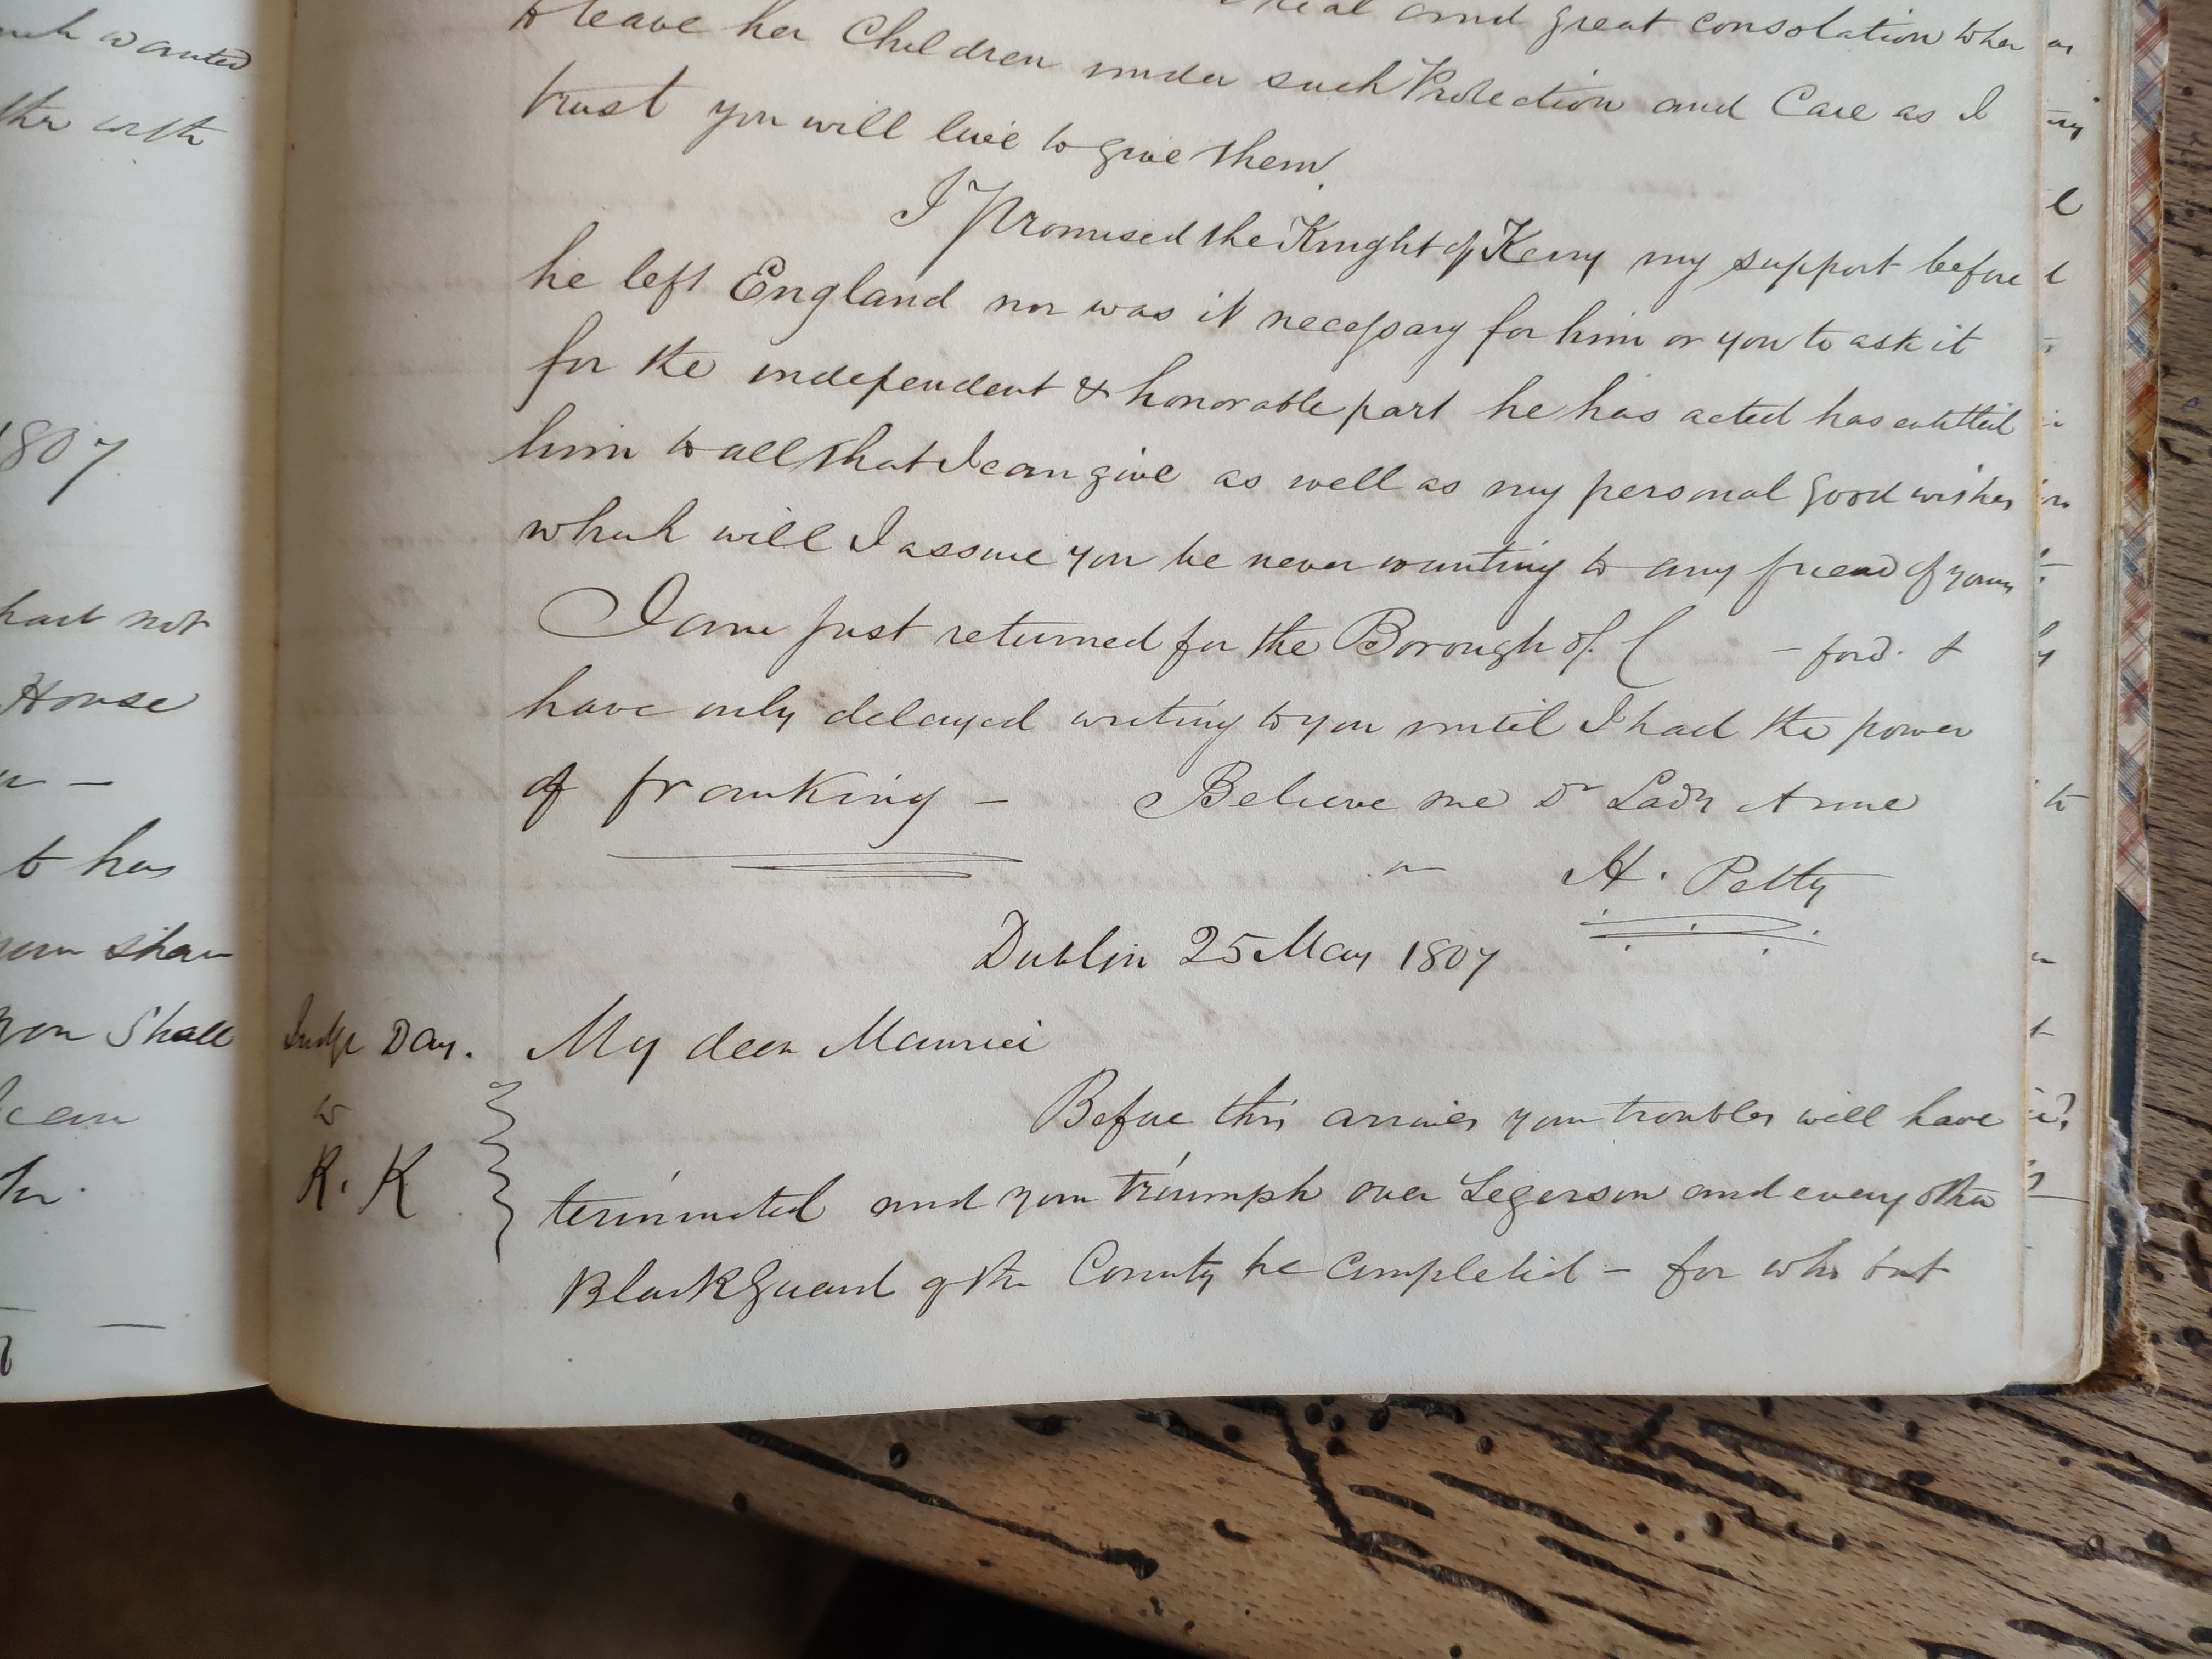 uch wanted
ther with
1807
hart not
House
to has
your shar
you Shall
I can
real and great consolation when
to leave her Children under such Protection and Care as I
trust you will live to give them.
I Promised the Knight of Kerry my support before
he left England nor was it necessary for him or you to ask it
for the independent & honorable part he has acted has entitled
him to all that I can give as well as my personal good wishes
which will I assure you be never wanting to any friend of yours
I am just returned for the Borough of C - ford. &
have only delayed writing to you until I had the power
of franking - Believe me Dr Lady Anne
H. Petty
Dublin 25 May 1807
Judge Day.
to
K. K
My dear Maurice
Before this arrives your troubles will have
terminated and your triumph over Segerson and every other
BlackGuard of the County be completed - for who but